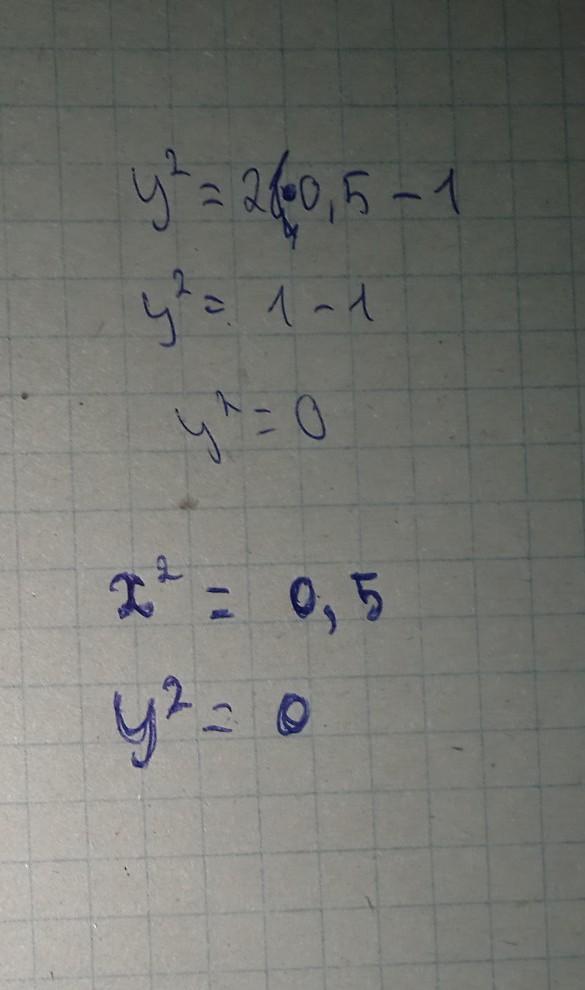 y² = 2·0,5 - 1
y² = 1 - 1
y² = 0
x² = 0,5
y² = 0